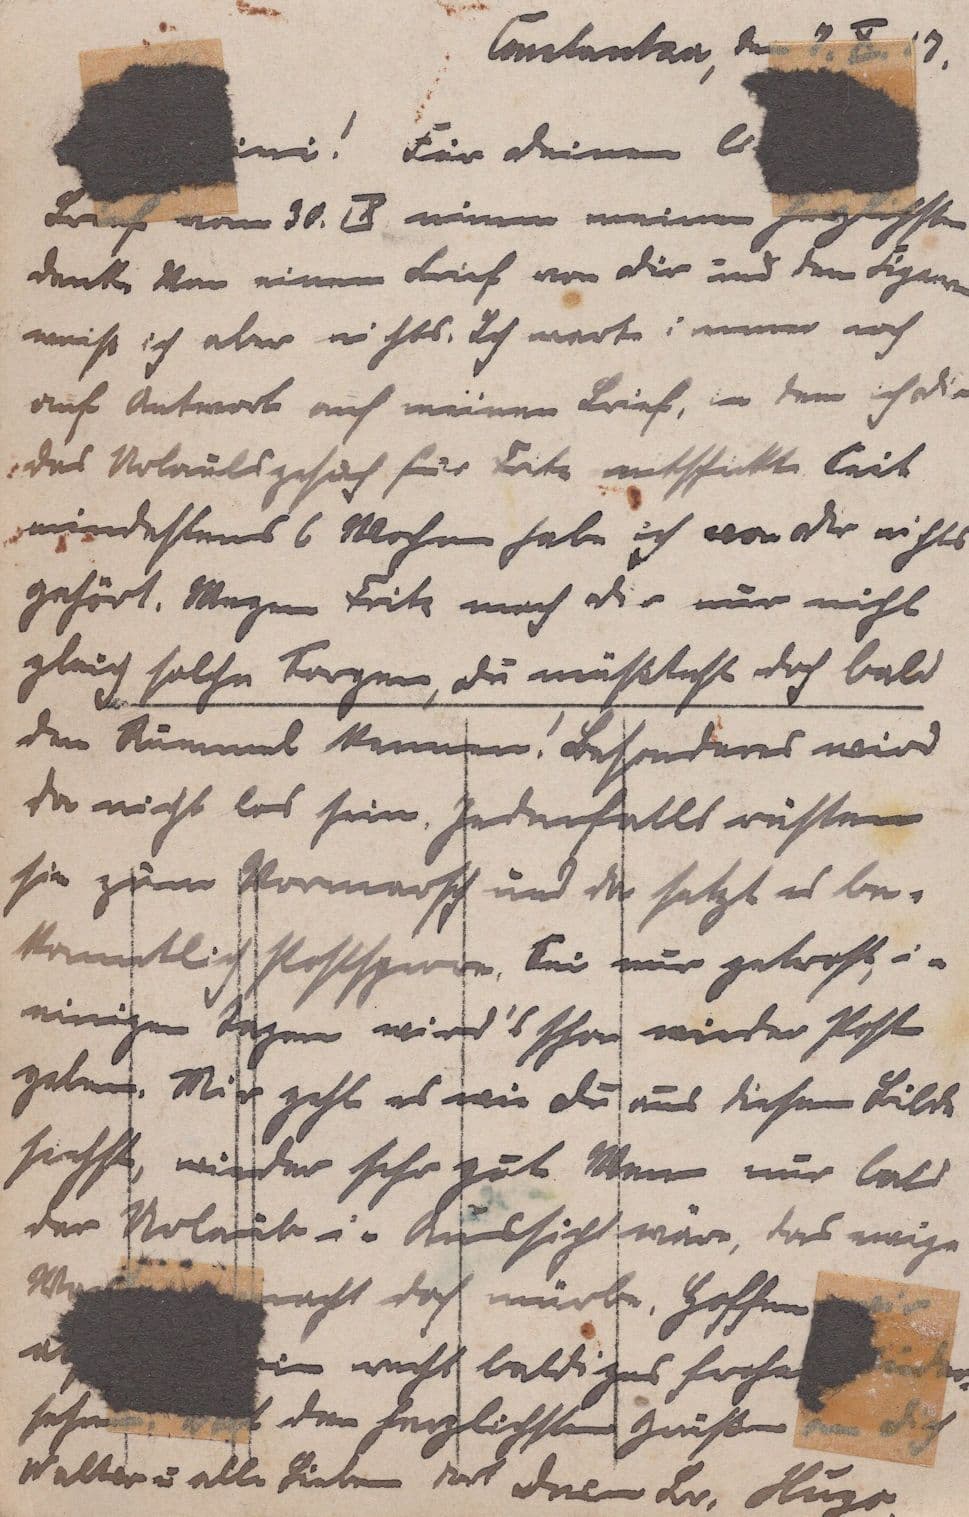 Constantza, den 7. X. 17.
ini! Für deinen
Brief vom 30. IX nimm meinen herzlichsten
Dank. Von einem Brief von dir und den Zigarren
weiß ich aber nichts. Ich warte immer noch
auf Antwort auf meinen Brief, in dem ich dir
das Urlaubsgesuch für Fritz mitschickte. Seit
mindestens 6 Wochen habe ich von dir nichts
gehört. Wegen Fritz mach dir nur nicht
gleich solche Sorgen, du müßtest doch bald
den Rummel kennen! Besonderes wird
da nicht los sein. Jedenfalls rüsten
sie zum Vormarsch und da setzt es be-
kanntlich Postsperre. Sei nur getrost, in
einigen Tagen wird's schon wieder Post
geben. Mir geht es wie Du aus diesem Bilde
siehst, wieder sehr gut. Wenn nur bald
der Urlaub in Aussicht wäre, das ewige
macht doch mürbe. Hoffen wir
ein recht baldiges frohes Wieder-
sehen. den herzlichsten Grüßen an Dich
Walter u alle Lieben dort Dein Br. Hugo.